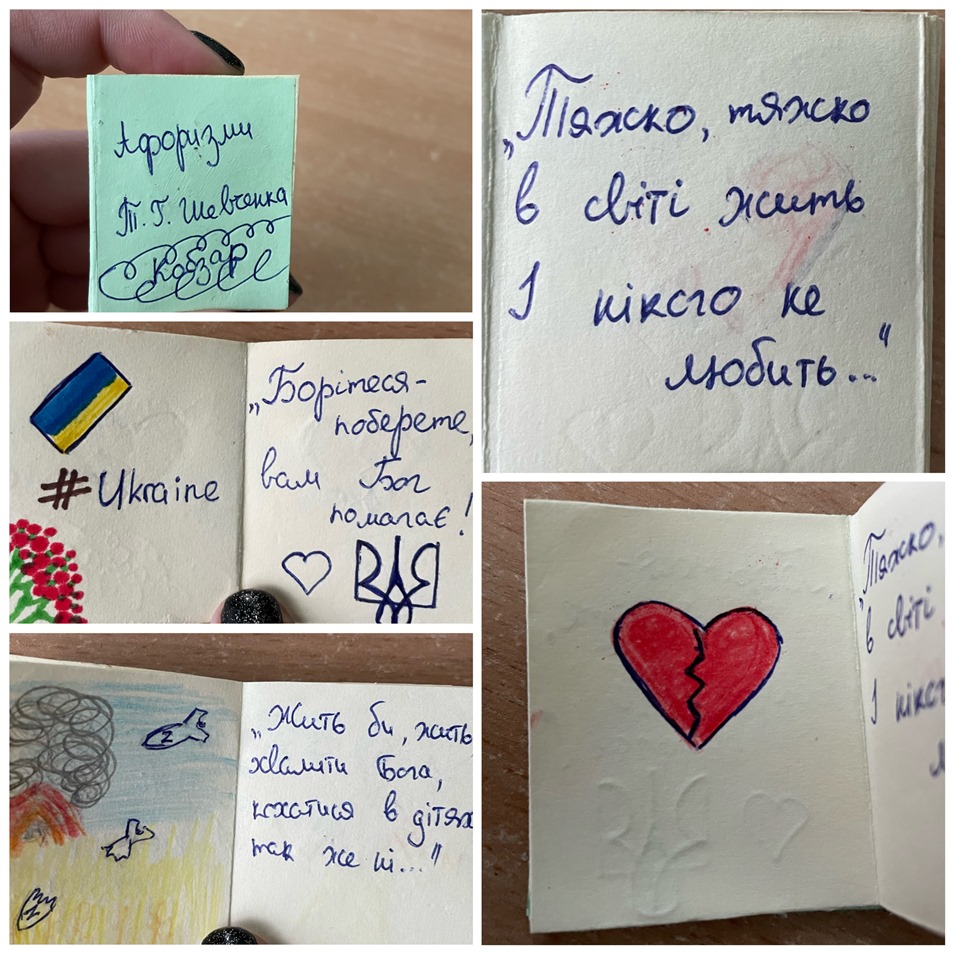 Афоризми
Т. Г. Шевченка
Кобзар
„Тяжко, тяжко
в світі жить
І нікого не
любить..."
#Ukraine
„Борітеся-
поборете,
вам Бог
помагає!
Z
Z
„Жить би, жить
хвалити Бога,
кохатися в дітях
так же ні..."
„Тяжко,
в світі
І нікого